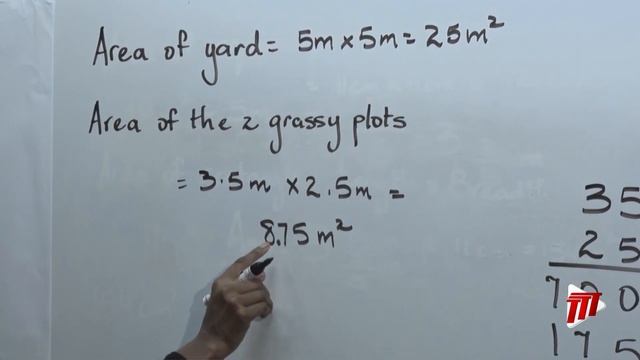 Area of yard = 5m × 5m = 25m²
Area of the 2 grassy plots
= 3.5m × 2.5m =
8.75 m²
35
25
700
175